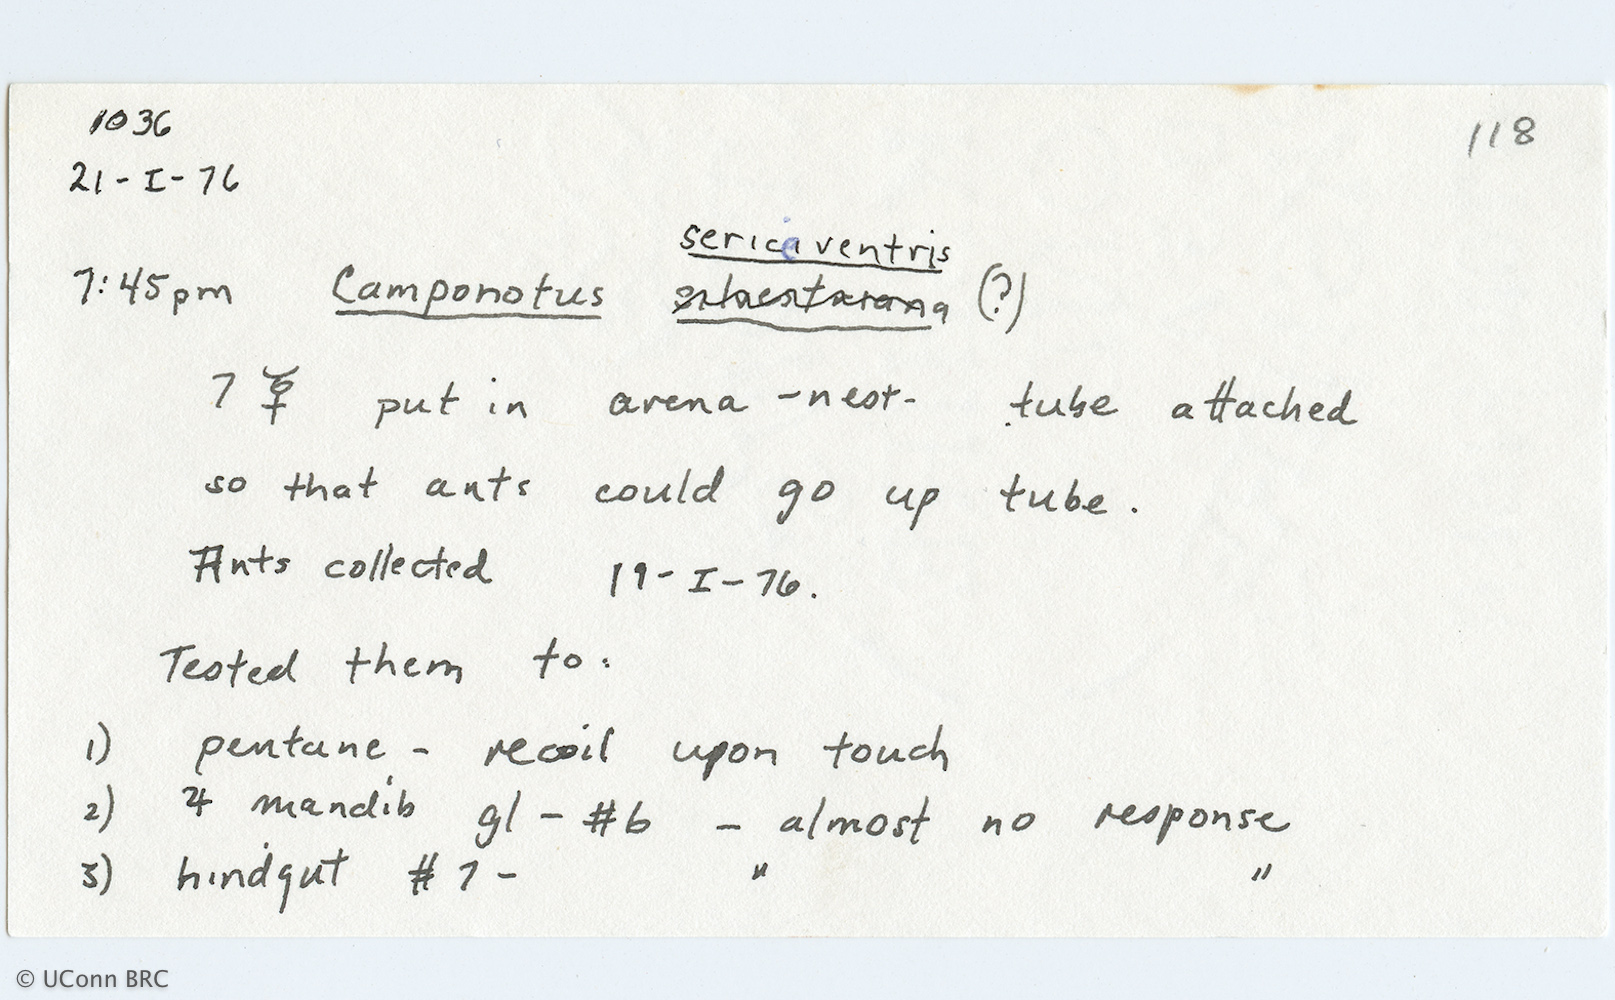 1036
118
21-I-76
sericeiventris
7:45pm Camponotus (?)
7 ☿ put in arena -nest- tube attached
so that ants could go up tube.
Ants collected 19-I-76.
Tested them to:
1) pentane - recoil upon touch
2) 4 mandib gl - #6 - almost no response
3) hindgut #7 - " "
© UConn BRC